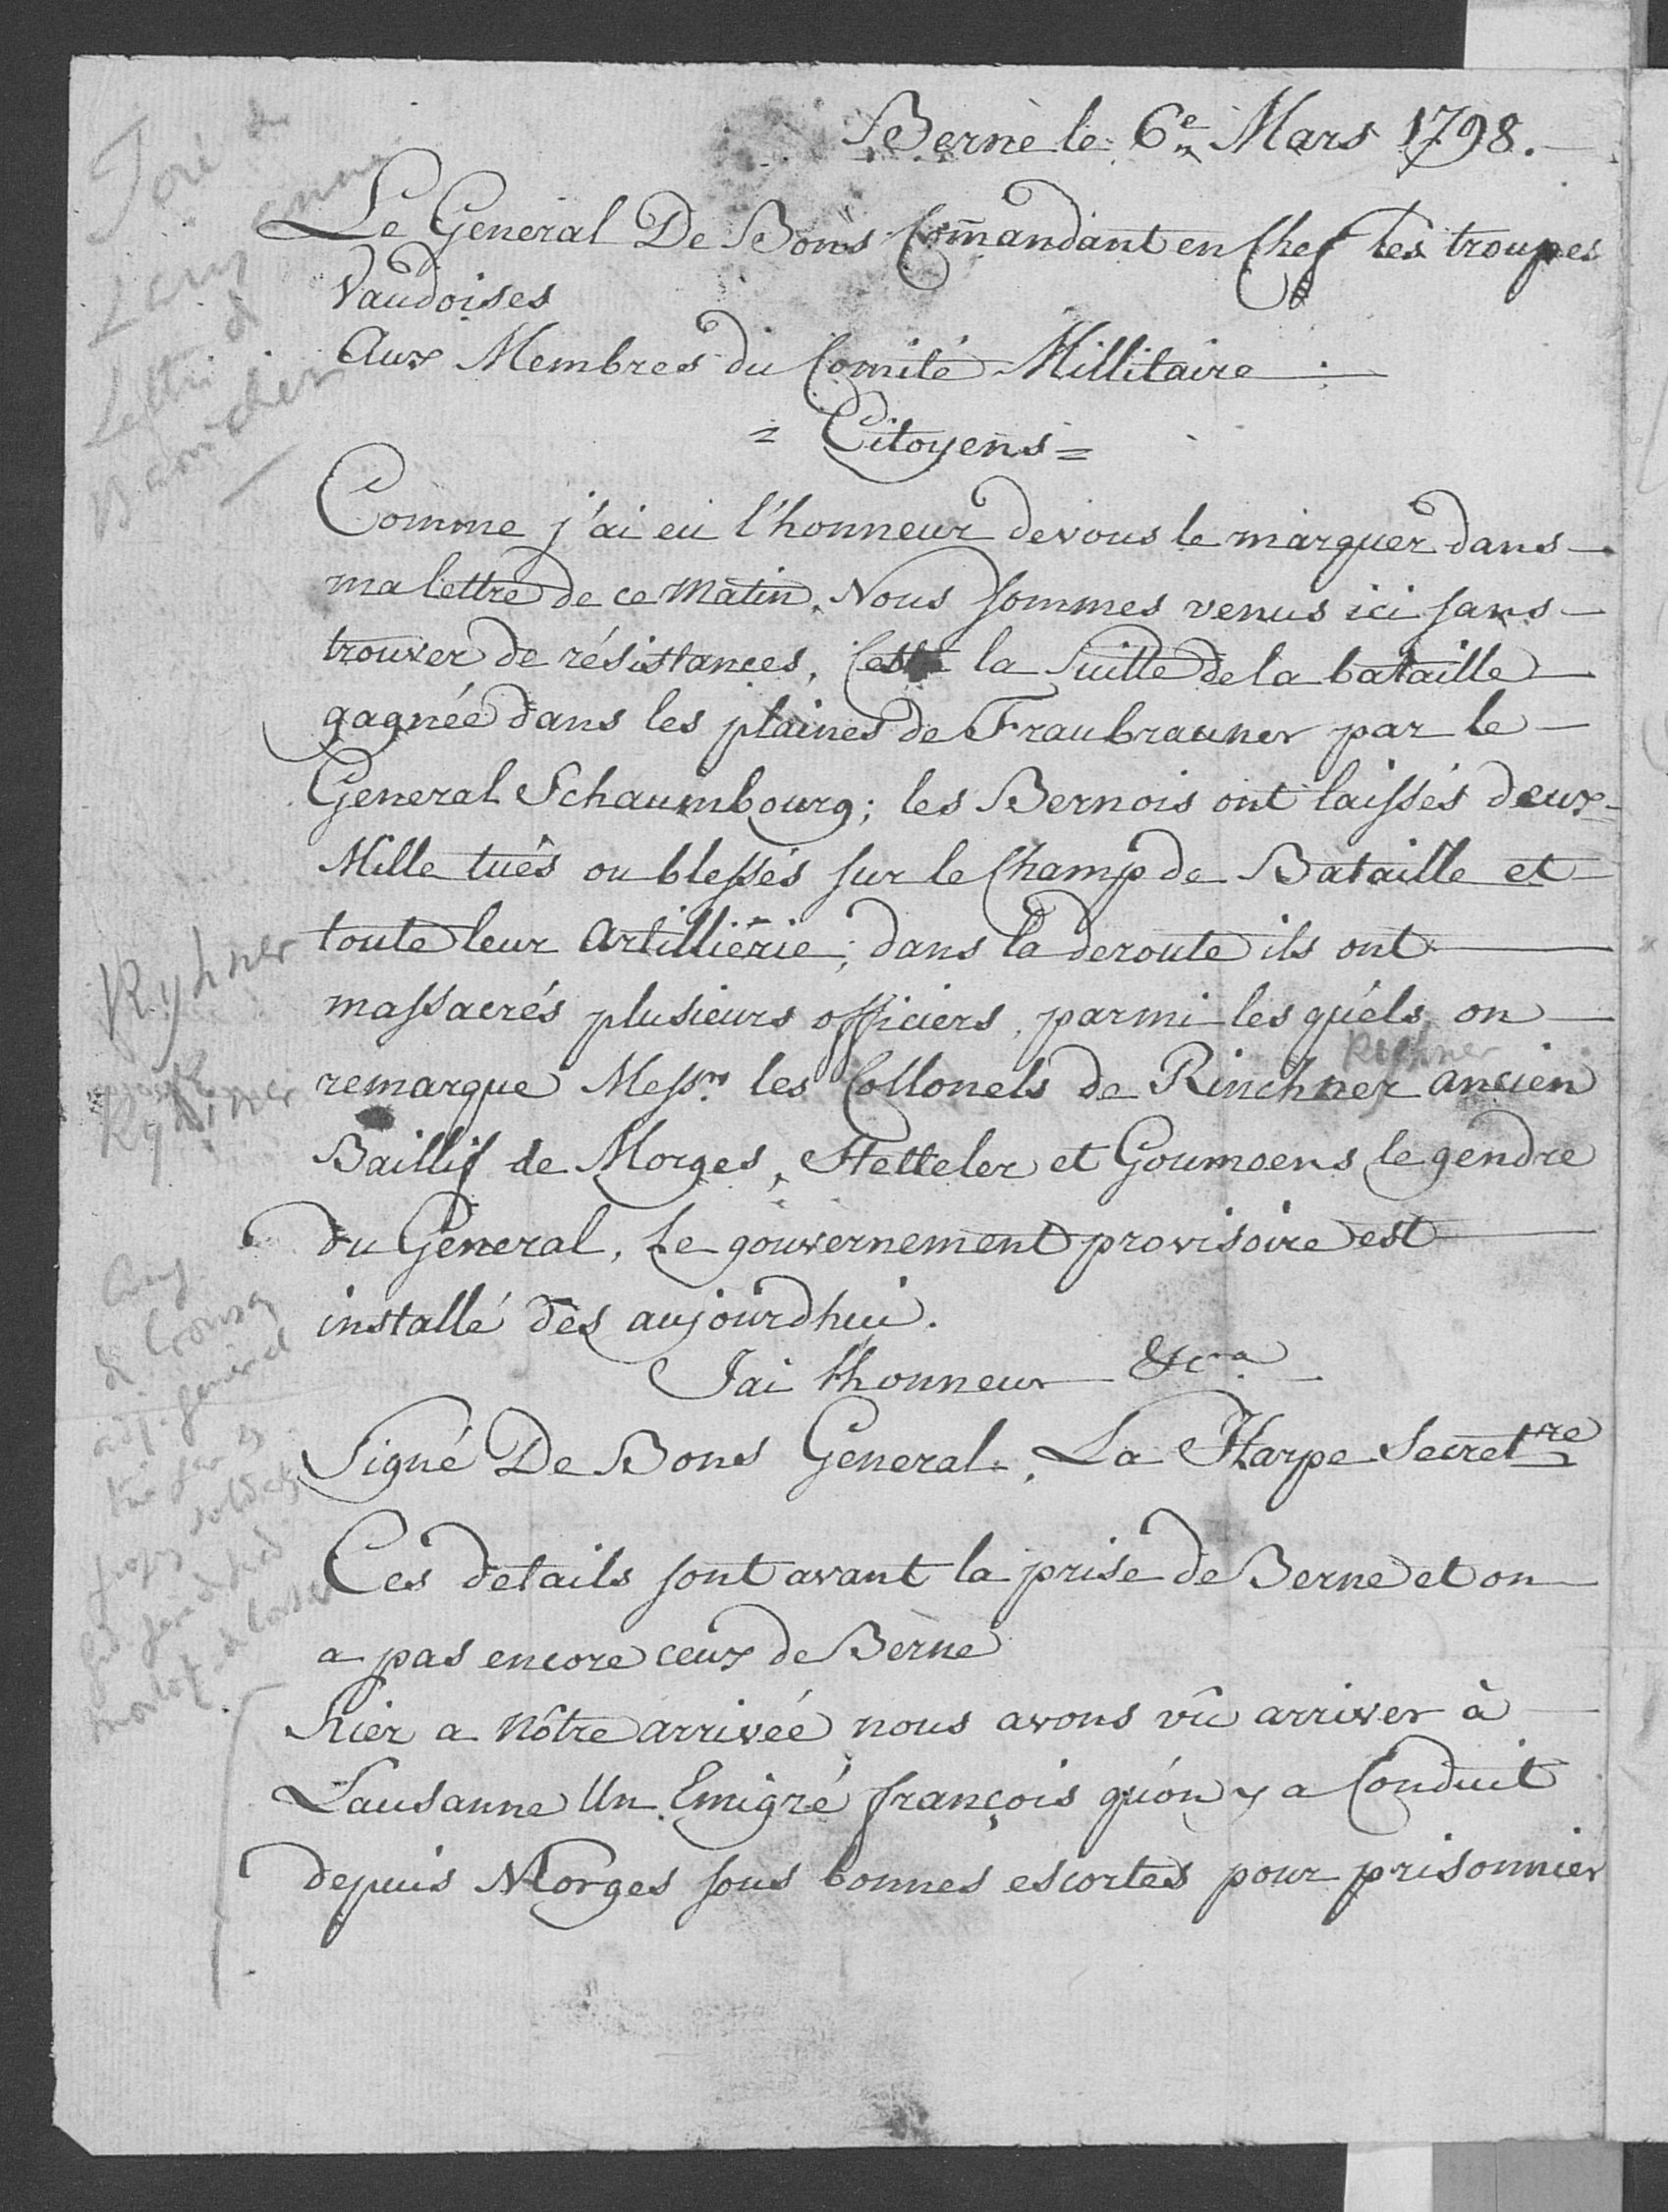 Berne le 6e Mars 1798.
Le General De Bons Com̄andant en Chef les troupes
Vaudoises
Aux Membres du Comité Millitaire
= Citoyens =
Comme j'ai eü l'honneur de vous le marquer dans
ma lettre de ce matin. Nous sommes venus ici sans
trouver de résistances, Cest la Suitte de la bataille
gagnée dans les plaines de Fraubrauner par le
General Schaumbourg; les Bernois ont laissés deux
Mille tués ou blessés sur le Champ de Bataille et
toute leur Artilliérie; dans la deroute ils ont
massacrés plusieurs officiers, parmi les quéls on
Rychner
remarque Messrs les Collonels de Rinchner ancien
Baillif de Morges, Stetteler et Goumoens le gendre
du General, Le gouvernement provisoire est
installé dès aujourdhui.
Jai lhonneur &cra
Signé De Bons General. La Harpe Secretre
Ces details sont avant la prise de Berne et on
a pas encore ceux de Berne
hier a nôtre arrivée nous avons vû arriver à
Lausanne Un Emigré françois qu'on y a Conduit
depuis Morges sous bonnes escortes pour prisonnier
Ryhner
Ryhiner